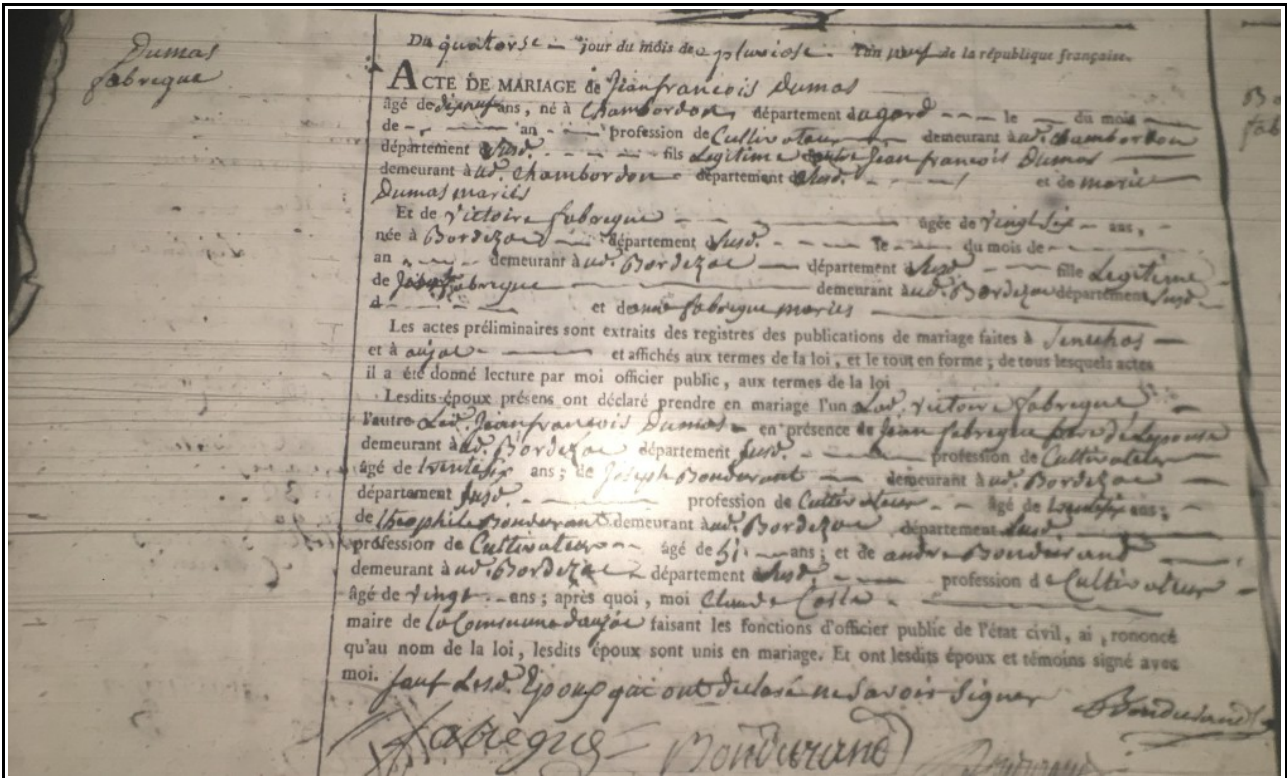 Dumas
fabregue
Du quatorse jour du mois de pluviose l'an neuf de la république française.
ACTE DE MARIAGE de Jean francois Dumas
âgé de ans, né à Chambordon, département du gard le du mois
de an profession de Cultivateur demeurant à ud. chambordon
département Susd. fils Legitime Jean francois Dumas
demeurant à ud. Chambordon département Susd. et de marie
Dumas mariés
Et de Victoire fabregue âgée de vingt six ans,
née à Bordezac département Susd. le du mois de
an demeurant à ud. Bordezac département Susd. fille Legitime
de fabregue demeurant à ud. Bordezac département Susd.
d et de anne fabregue mariés
Les actes préliminaires sont extraits des registres des publications de mariage faites à Senechas
et à aujac et affichés aux termes de la loi, et le tout en forme ; de tous lesquels actes
il a été donné lecture par moi officier public, aux termes de la loi
Lesdits époux présens ont déclaré prendre en mariage l'un Lad. victoire fabregue
l'autre Led. Jean francois Dumas en présence de Jean fabregue de Lepouse
demeurant à ud. Bordezac département Susd. profession de Cultivateur
âgé de ans ; de Joseph Bondurant demeurant à ud. Bordezac
département Susd. profession de Cultivateur âgé de ans ;
de theophile Bondurant demeurant à ud. Bordezac département Susd.
profession de Cultivateur âgé de ans ; et de andre Bondurand
demeurant à ud. Bordezac département Susd. profession de Cultivateur
âgé de vingt ans ; après quoi, moi Claude Coste
maire de la Commune daujac faisant les fonctions d'officier public de l'état civil, ai , rononcé
qu'au nom de la loi, lesdits époux sont unis en mariage. Et ont lesdits époux et témoins signé avec
moi. Sauf Lesd. Epoux qui ont declaré ne savoir Signer
Bondurand
fabregue Bondurand Bondurand